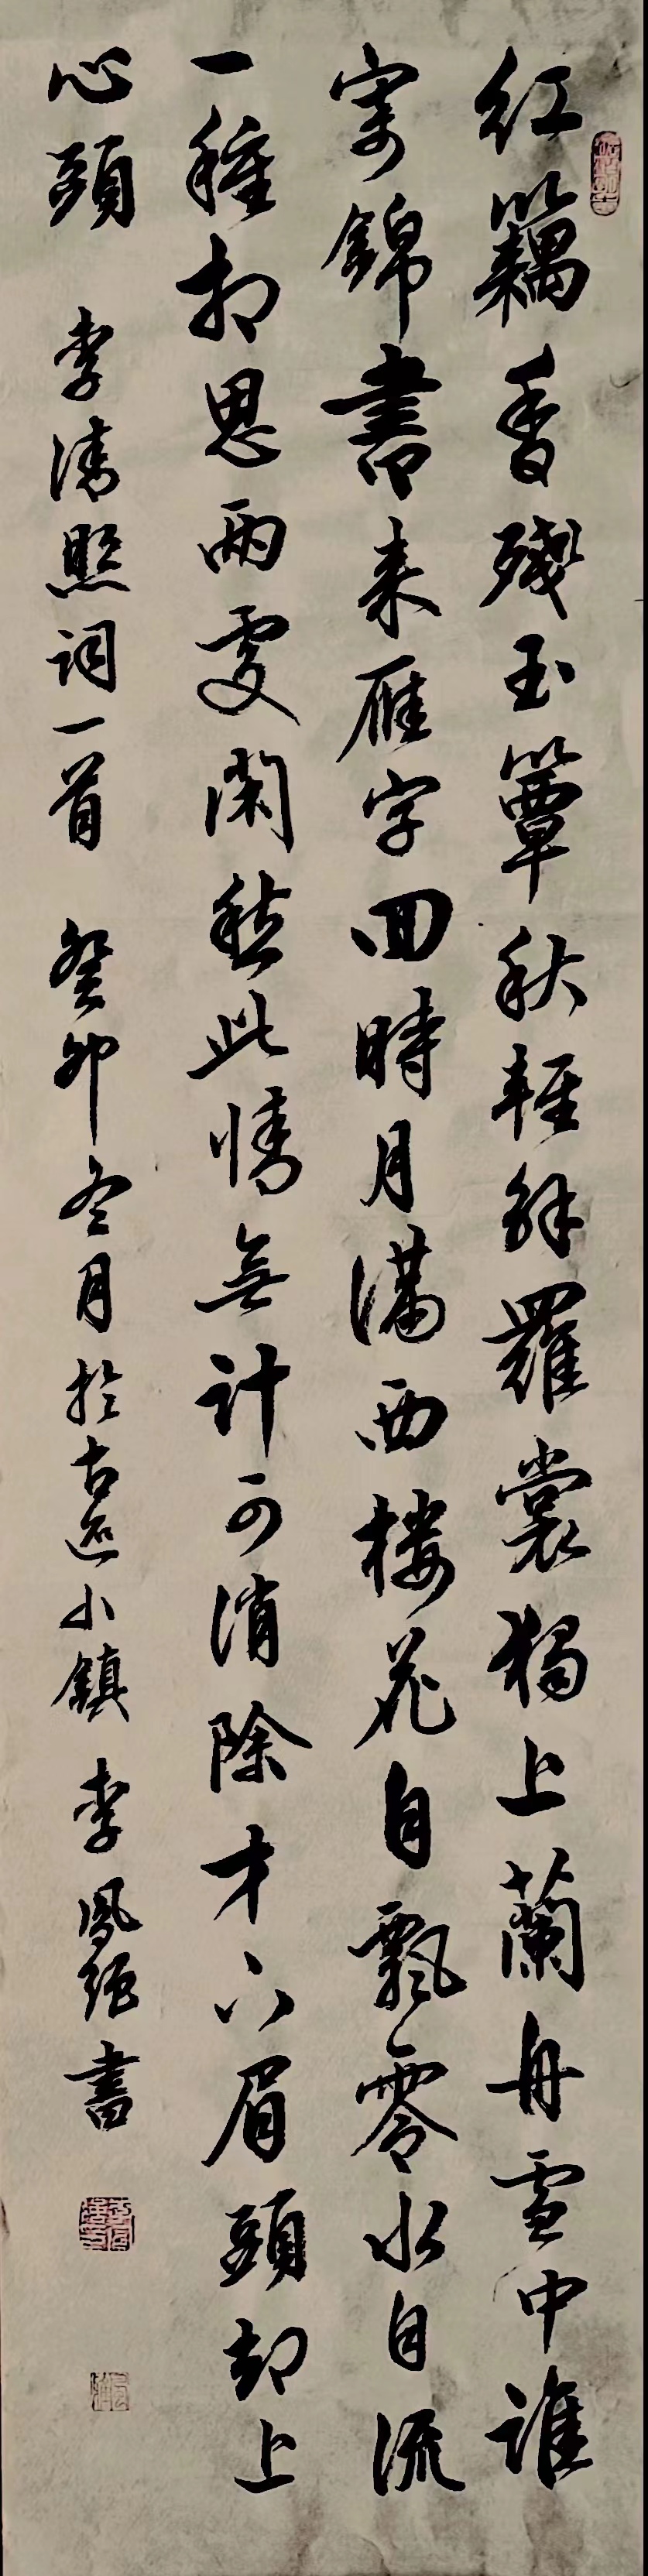 紅藕香殘玉簟秋輕解羅裳獨上蘭舟雲中誰
寄錦書來雁字回時月滿西樓花自飄零水自流
一種相思兩處閑愁此情無計可消除才下眉頭却上
心頭 李清照词一首 癸卯冬月於古邑小鎮 李鳳強書